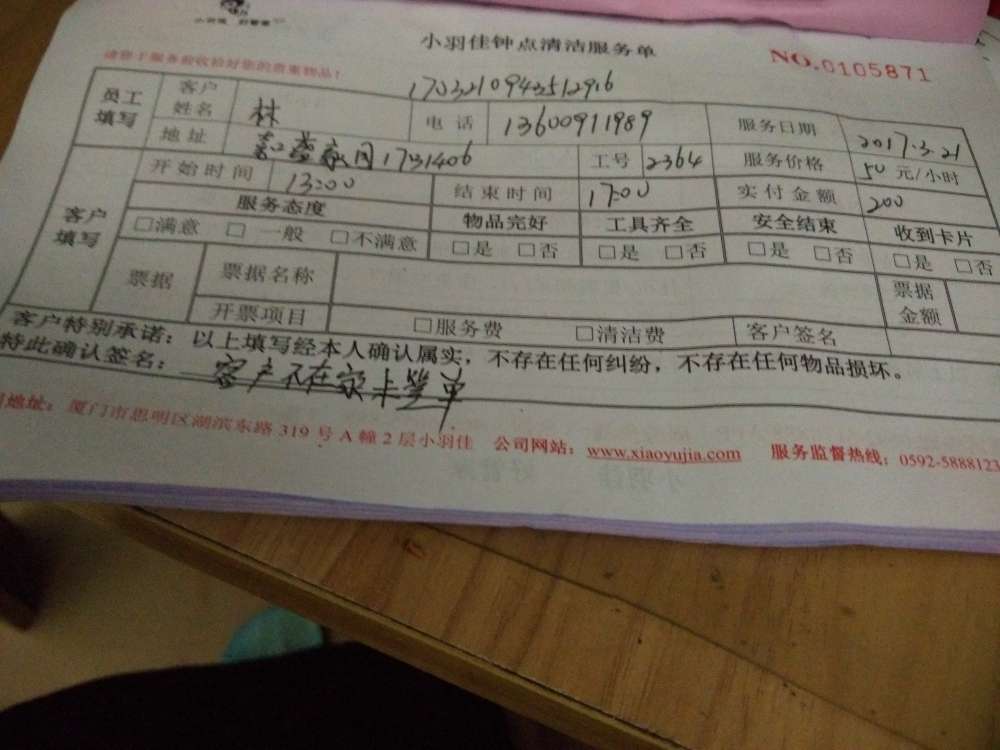 小羽佳 好管家
小羽佳钟点清洁服务单
NO.0105871
请您于服务前收拾好您的贵重物品！
1703210943512916
员工填写 客户姓名 林 电话 13600911989 服务日期 2017.3.21
地址 家园1731406 工号 2364 服务价格 50 元/小时
客户填写 开始时间 13:00 结束时间 17:00 实付金额 200
服务态度 物品完好 工具齐全 安全结束 收到卡片
□满意 □一般 □不满意 □是 □否 □是 □否 □是 □否 □是 □否
票据 票据名称 票据金额
开票项目 □服务费 □清洁费 客户签名
客户特别承诺：以上填写经本人确认属实，不存在任何纠纷，不存在任何物品损坏。
特此确认签名：客户不在家卡签单
地址：厦门市思明区湖滨东路319号A幢2层小羽佳 公司网站：www.xiaoyujia.com 服务监督热线：0592-5888123